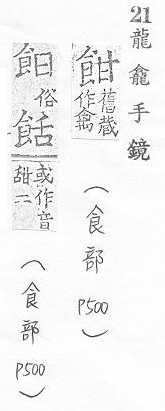 21龍龕手鏡
舊藏
作禽
(食部 P500)
俗餂
或作音
甜二
(食部 P500)